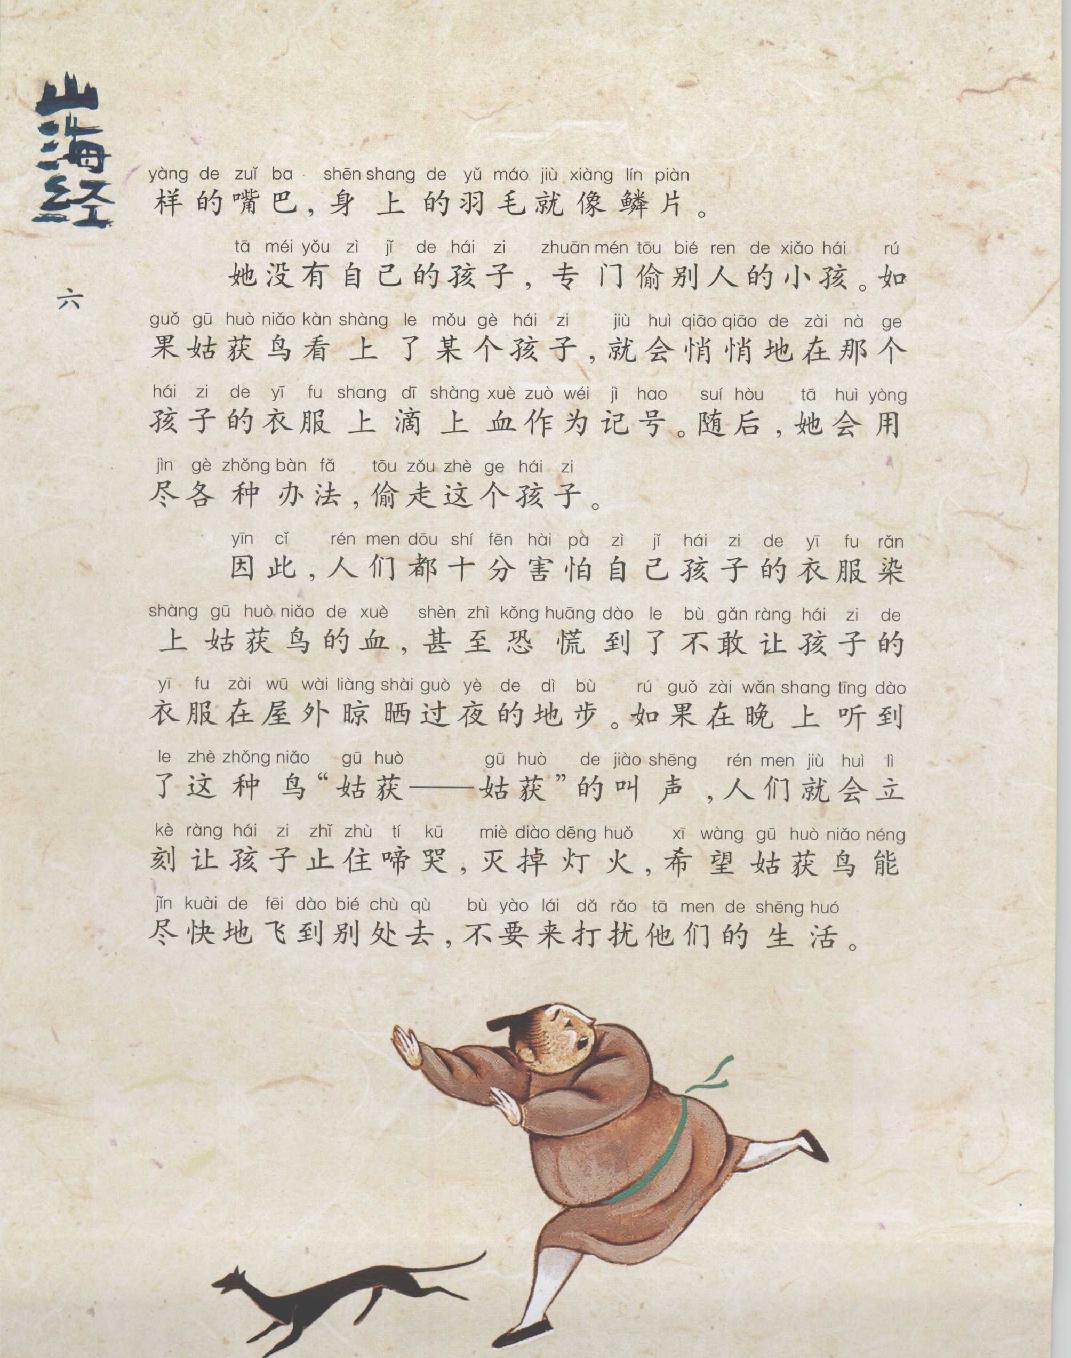 山海经
六
yàng de zuǐ ba shēn shang de yǔ máo jiù xiàng lín piàn
样的嘴巴，身上的羽毛就像鳞片。
tā méi yǒu zì jǐ de hái zi zhuān mén tōu bié ren de xiǎo hái rú
她没有自己的孩子，专门偷别人的小孩。如
guǒ gū huò niǎo kàn shàng le mǒu gè hái zi jiù huì qiāo qiāo de zài nà ge
果姑获鸟看上了某个孩子，就会悄悄地在那个
hái zi de yī fu shang dī shàng xuè zuò wéi jì hao suí hòu tā huì yòng
孩子的衣服上滴上血作为记号。随后，她会用
jìn gè zhǒng bàn fǎ tōu zǒu zhè ge hái zi
尽各种办法，偷走这个孩子。
yīn cǐ rén men dōu shí fēn hài pà zì jǐ hái zi de yī fu rǎn
因此，人们都十分害怕自己孩子的衣服染
shàng gū huò niǎo de xuè shèn zhì kǒng huāng dào le bù gǎn ràng hái zi de
上姑获鸟的血，甚至恐慌到了不敢让孩子的
yī fu zài wū wài liàng shài guò yè de dì bù rú guǒ zài wǎn shang tīng dào
衣服在屋外晾晒过夜的地步。如果在晚上听到
le zhè zhǒng niǎo gū huò gū huò de jiào shēng rén men jiù huì lì
了这种鸟“姑获——姑获”的叫声，人们就会立
kè ràng hái zi zhǐ zhù tí kū miè diào dēng huǒ xī wàng gū huò niǎo néng
刻让孩子止住啼哭，灭掉灯火，希望姑获鸟能
jǐn kuài de fēi dào bié chù qù bù yào lái dǎ rǎo tā men de shēng huó
尽快地飞到别处去，不要来打扰他们的生活。